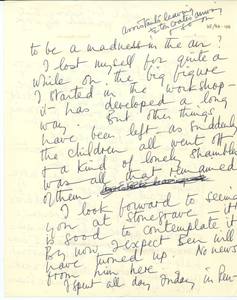 assistants leaving
to be a madness in the air?
I lost myself for quite a
while on the big figure
I started in the workshop –
it has developed a long
way. But other things
have been left – as suddenly
the children all went off
& a kind of lonely shambles
was all that remained
of them
I look forward to seeing
you at Stonegrave – it
is good to contemplate it
By now I expect Ben will
have turned up. No news
from him here
I spent all day Friday in Pen-